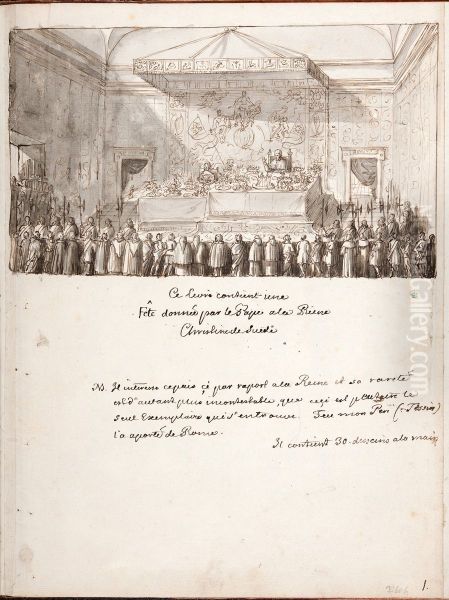 Ce Livre contient une
Fête donnée par le Pape a la Reine
Christine de Suède
NB. Il interesse çepais çé par raport a la Reine et sa rareté
est d'autant plus incontestable, que ceçi est le
seul Exemplaire qui s'en trouve. Feu mon Peri (:Tessin)
l'a aporté de Rome.
Il contient 30 dessins a la main
1.